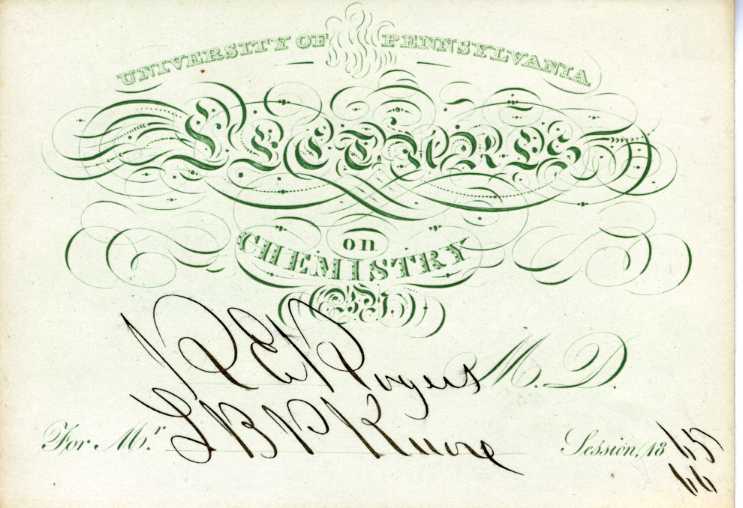 UNIVERSITY OF PENNSYLVANIA
LECTURES
on
CHEMISTRY
BY
R E Rogers M.D.
For Mr. L B P
Session, 18 65
66